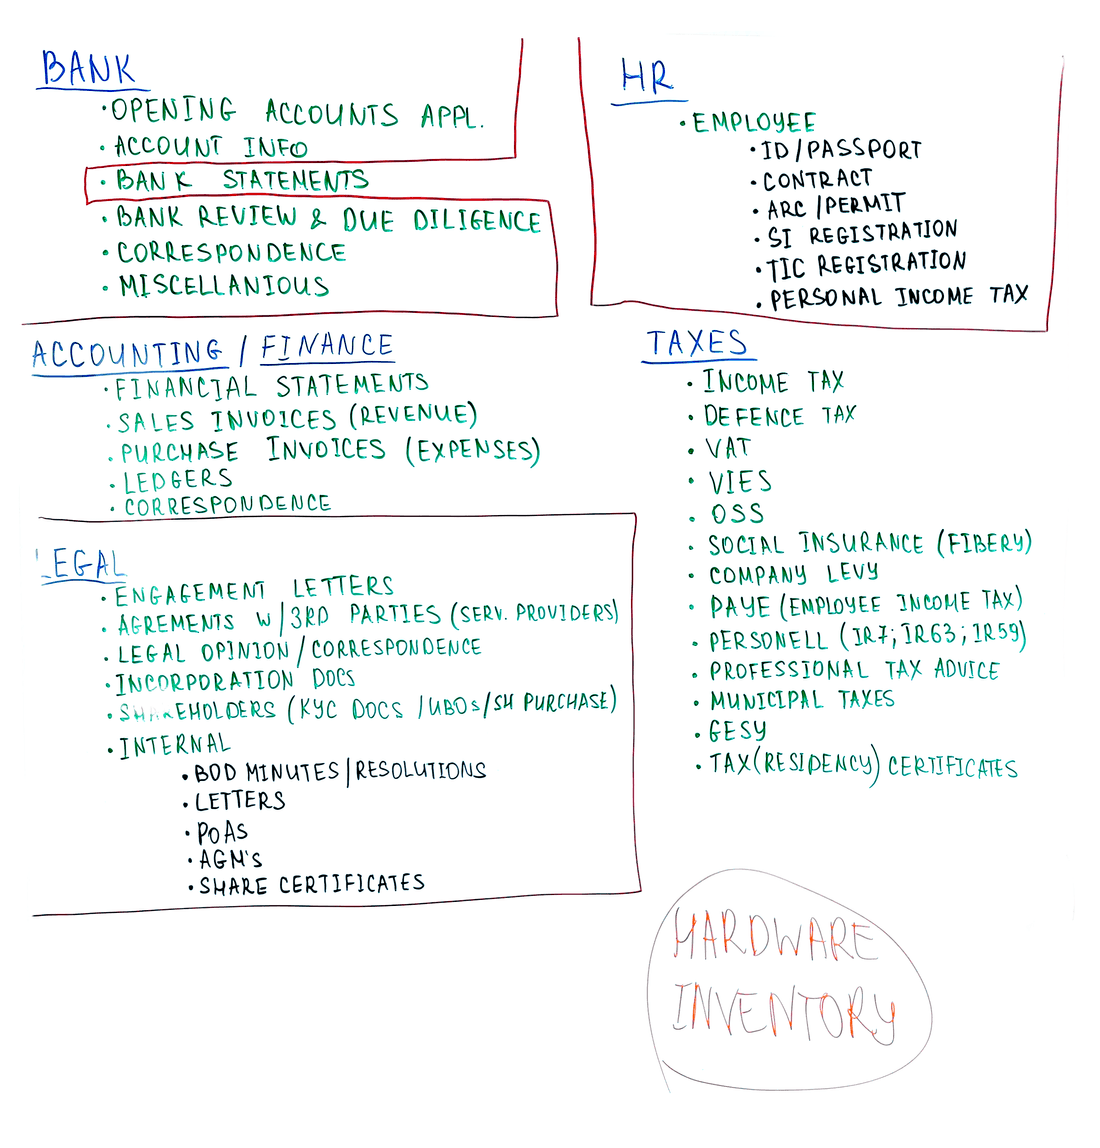 BANK
• OPENING ACCOUNTS APPL.
• ACCOUNT INFO
• BANK STATEMENTS
• BANK REVIEW & DUE DILIGENCE
• CORRESPONDENCE
• MISCELLANIOUS
HR
• EMPLOYEE
• ID/PASSPORT
• CONTRACT
• ARC/PERMIT
• SI REGISTRATION
• TIC REGISTRATION
• PERSONAL INCOME TAX
ACCOUNTING / FINANCE
• FINANCIAL STATEMENTS
• SALES INVOICES (REVENUE)
• PURCHASE INVOICES (EXPENSES)
• LEDGERS
• CORRESPONDENCE
TAXES
• INCOME TAX
• DEFENCE TAX
• VAT
• VIES
• OSS
• SOCIAL INSURANCE (FIBERY)
• COMPANY LEVY
• PAYE (EMPLOYEE INCOME TAX)
• PERSONELL (IR7; IR63; IR59)
• PROFESSIONAL TAX ADVICE
• MUNICIPAL TAXES
• GESY
• TAX (RESIDENCY) CERTIFICATES
LEGAL
• ENGAGEMENT LETTERS
• AGREMENTS W/3RD PARTIES (SERV. PROVIDERS)
• LEGAL OPINION/CORRESPONDENCE
• INCORPORATION DOCS
• SHAREHOLDERS (KYC DOCS /UBOs/SH PURCHASE)
• INTERNAL
• BOD MINUTES/RESOLUTIONS
• LETTERS
• POAs
• AGM's
• SHARE CERTIFICATES
HARDWARE
INVENTORY